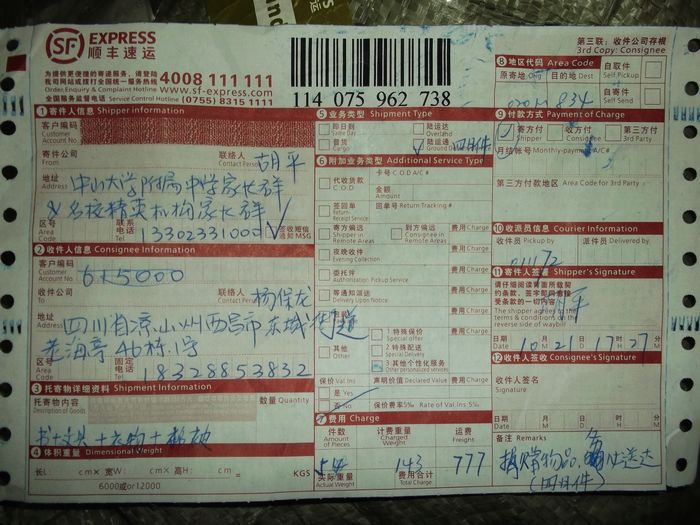 SF EXPRESS
顺丰速运
为提供更便捷的寄递服务，请登陆
我司网站或拨打全国统一服务热线
4008 111 111
Order, Enquiry & Complaint Hotline
www.sf-express.com
全国服务监督电话 Service Control Hotline (0755) 8315 1111
114 075 962 738
第三联：收件公司存根
3rd Copy: Consignee
1 寄件人信息 Shipper information
客户编码
Customer
Account No.
寄件公司
From
联络人
Contact Person
胡平
地址
Address
中山大学附属中学家长群
名校精英机构家长群
区号
Area Code
联系
电话
Tel
13302331000
签收短信
通知 MSG
2 收件人信息 Consignee Information
客户编码
Customer
Account No.
收件公司
To
联络人
Contact Person
杨保龙
地址
Address
四川省凉山州西昌市东城街道
海亭46栋1号
区号
固定
电话
Tel
18328853832
3 托寄物详细资料 Shipment Information
托寄物内容
Description of Goods
数量 Quantity
书+文具+衣物+
4 体积重量 Dimensional Weight
长L: cm× 宽W: cm× 高H: cm=
KGS
6000或or12000
5 业务类型 Shipment Type
即日到
陆运达
Overland
普货
Cargo
陆运通
四件
6 附加业务类型 Additional Service Type
代收货款
C.O.D
卡号 C.O.D A/C#
金额
Amount
签回单
Return
Receipt Service
回单单号 Return Tracking #
寄方偏远
Shipper in
Remote Areas
到方偏远
Consignee in
Remote Areas
费用 Charge
夜晚收件
Evening Collection
费用 Charge
委托件
Authorization Pickup Service
费用 Charge
等通知派送
Delivery Upon Notice
费用 Charge
其他
Other
1.特殊保价
Special offer
2.特殊配送
Special Delivery
3.其他个性化服务
Other personalized services
费用 Charge
保价 Val.Ins
声明价值 Declared Value
费用 Charge
是 Yes
否 No
保价费率‰ Rate of Val.Ins.‰
7 费用 Charge
件数
Amount
of Pieces
计费重量
Chargeable
Weight
运费
Freight
143
777
实际重量
Actual Weight
费用合计
Total Charge
8 地区代码 Area Code
原寄地 Orig
目的地 Dest
834
自取件
Self Pickup
自寄件
Self Send
9 付款方式 Payment of Charge
寄方付
Shipper
收方付
Consignee
第三方付
3rd Party
月结帐号 Monthly-payment A/C#
第三方付款地区 Area Code for 3rd Party
10 收派员信息 Courier Information
收件员 Pickup by
派件员 Delivered by
11 寄件人签署 Shipper's Signature
请仔细阅读背面所载契
约条款，签字即同意接
受条款的一切内容
The shipper agrees to the
terms & conditions on the
reverse side of waybill
日期
Date
10 M月 21 D日 17 H时 27 M分
12 收件人签署 Consignee's Signature
收件人签名
Signature
日期
Date
M月 D日 H时 M分
备注 Remarks
捐赠物品，务必送达
(四件)